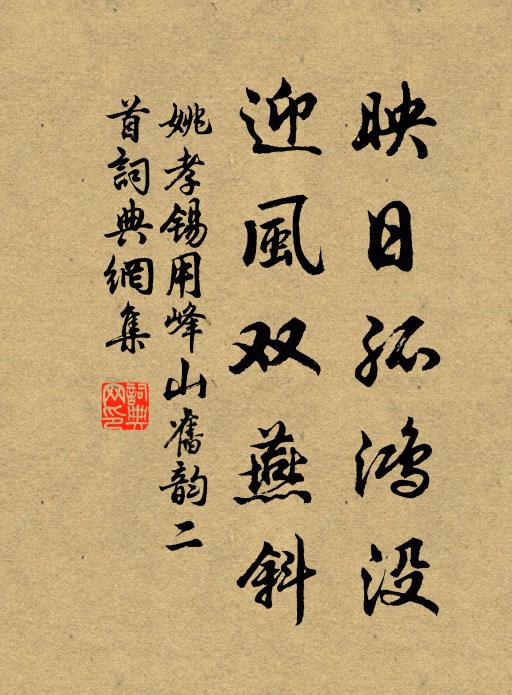 映日孤鴻没
迎風双燕斜
姚孝锡用峰山舊韵二
首詞典網集
詞典
网印